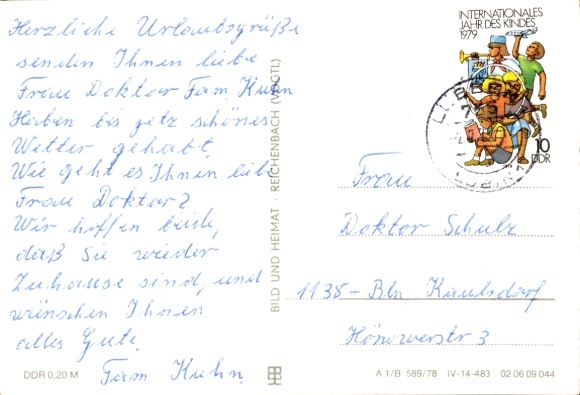 Herzliche Urlaubsgrüße
senden Ihnen liebe
Frau Doktor Fam. Kuhn
Haben bis jetz schönes
Wetter gehabt.
Wie geht es Ihnen liebe
Frau Doktor?
Wir hoffen beide,
daß Sie wieder
Zuhause sind, und
wünschen Ihnen
alles Gute.
Fam. Kuhn
DDR 0,20 M
BILD UND HEIMAT · REICHENBACH (VOGTL)
INTERNATIONALES
JAHR DES KINDES
1979
10
DDR
Frau
Doktor Schulz
1138 - Bln. Kaulsdorf
Hönowerstr 3
A 1/B 589/78 IV-14-483 02 06 09 044